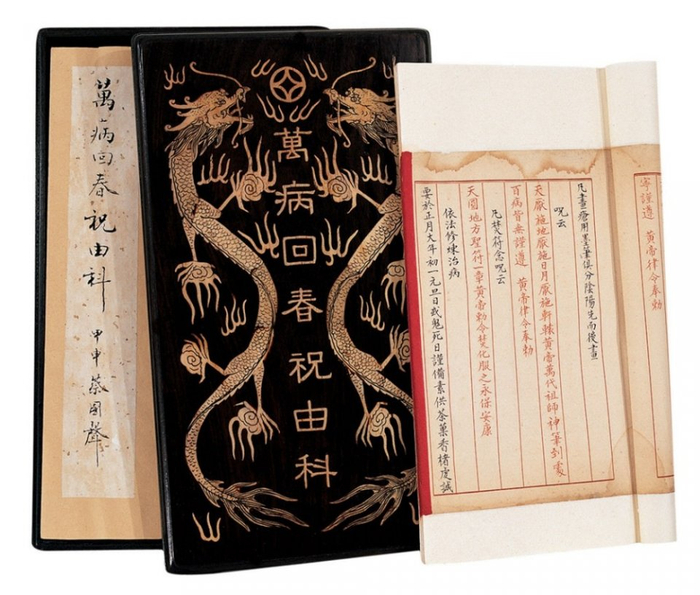 萬病回春祝由科
甲申 蔡國聲
萬病回春祝由科
謹遵 黃帝律令奉勅
凡畫瘡用墨筆俱分陰陽先而後畫
呪云
天厭施地厭施日月厭施軒轅黃帝萬代祖師神筆到處
百病皆無謹遵 黃帝律令奉勅
凡焚符念呪云
天圓地方聖符一章黃帝勅令焚化服之永保安康
依法修煉治病
要於正月大年初一元旦日或鬼死日謹備素供茶菓香楮虔誠